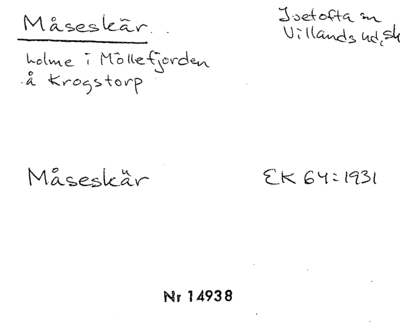 Måseskär
Ivetofta sn
Villands hd, sk
holme i Möllefjorden
å Krogstorp
Måseskär
EK 64:1931
Nr 14938